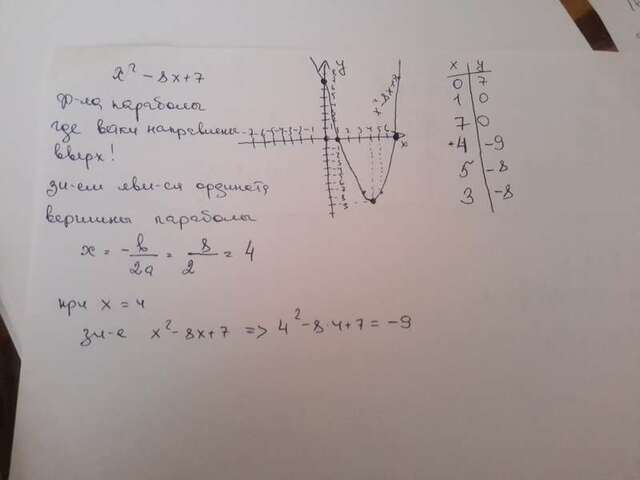 x² - 8x + 7
ф-ла параболы
где ветки направлены
вверх!
зн-ем яви-ся ордината
вершины параболы
x = -b/2a = 8/2 = 4
при x = 4
зн-е x² - 8x + 7 => 4² - 8·4 + 7 = -9
y
x
x² - 8x + 7
x y
0 7
1 0
7 0
4 -9
5 -8
3 -8